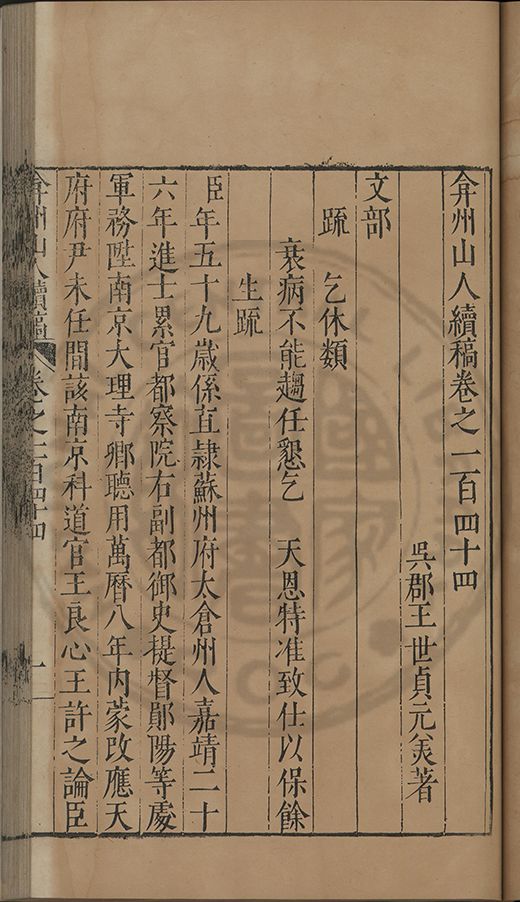 弇州山人續稿卷之一百四十四
吳郡王世貞元美著
文部
疏　乞休類
衰病不能趨任懇乞　天恩特准致仕以保餘
生疏
臣年五十九歲係直隸蘇州府太倉州人嘉靖二十
六年進士累官都察院右副都御史提督鄖陽等處
軍務陞南京大理寺卿聽用萬曆八年內蒙改應天
府府尹未任間該南京科道官王良心王許之論臣
弇州山人續稿　卷之一百四十四　一